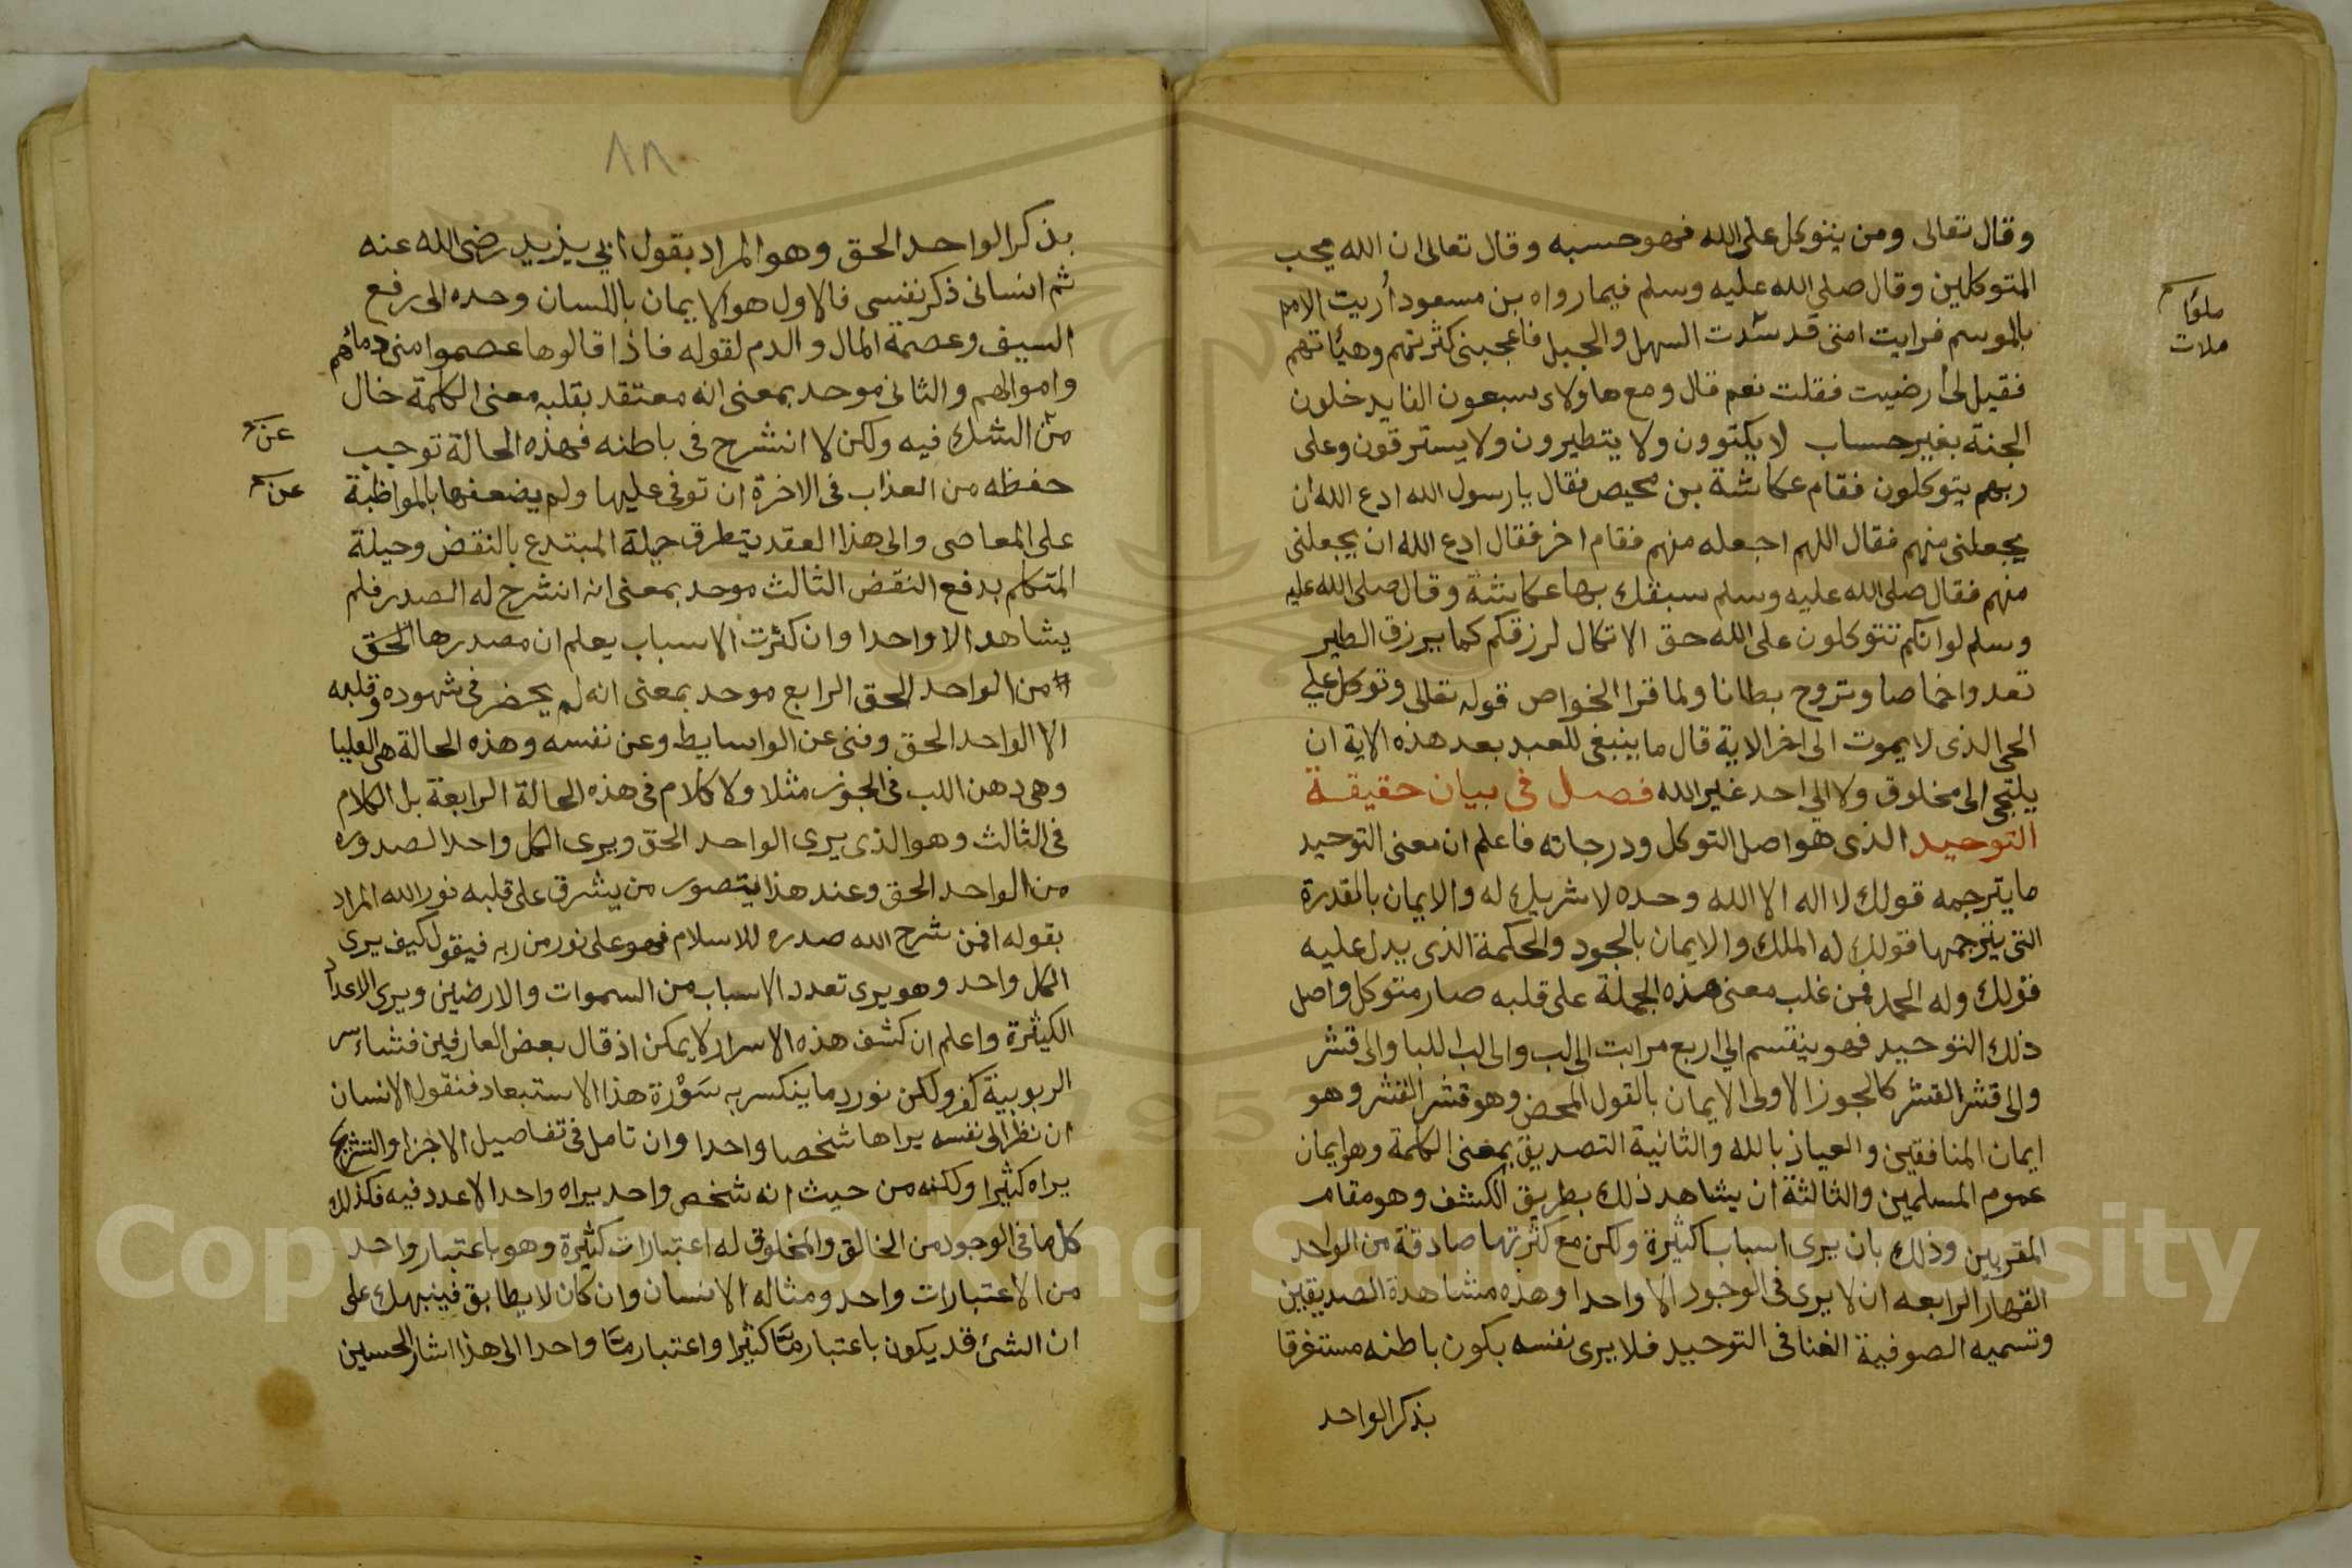 وقال تعالى ومن يتوكل على الله فهو حسبه وقال تعالى ان الله يحب
المتوكلين وقال صلى الله عليه وسلم فيما رواه بن مسعود أريت الامم
بالموسم فرايت امتى قد سدت السهل والجبل فاعجبنى كثرتهم وهيئاتهم
ملؤا
ملات
فقيل لى أرضيت فقلت نعم قال ومع هاولاء سبعون الفا يدخلون
الجنة بغير حساب لا يكتوون ولا يتطيرون ولا يسترقون وعلى
ربهم يتوكلون فقام عكاشة بن محيصر فقال يا رسول الله ادع الله ان
يجعلنى منهم فقال اللهم اجعله منهم فقام اخر فقال ادع الله ان يجعلنى
منهم فقال صلى الله عليه وسلم سبقك بها عكاشة وقال صلى الله عليه
وسلم لو انكم تتوكلون على الله حق الاتكال لرزقكم كما يرزق الطير
تغدوا خماصا وتروح بطانا ولما قرا الخواص قوله تعالى وتوكل على
الحى الذى لا يموت الى اخر الاية قال ما ينبغى للعبد بعد هذه الاية ان
يلتجى الى مخلوق ولا الى احد غير الله فصل فى بيان حقيقة
التوحيد الذى هو اصل التوكل ودرجاته فاعلم ان معنى التوحيد
ما يترجمه قولك لا اله الا الله وحده لا شريك له والايمان بالقدرة
التى يترجمها قولك له الملك والايمان بالجود والحكمة الذى يدل عليه
قولك وله الحمد فمن غلب معنى هذه الجملة على قلبه صار متوكل واصل
ذلك التوحيد فهو ينقسم الى اربع مرابت الى لب والى لب اللبا والى قشر
والى قشر القشر كالجوز الاولى الايمان بالقول المحض وهو قشر القشر وهو
ايمان المنافقين والعياذ بالله والثانية التصديق بمعنى الكلمة وهو ايمان
عموم المسلمين والثالثة ان يشاهد ذلك بطريق الكشف وهو مقام
المقربين وذلك بان يرى اسبابا كثيرة ولكن مع كثرتها صادقة من الواحد
القهار الرابعه ان لا يرى فى الوجود الا واحدا وهذه مشاهدة الصديقين
وتسميه الصوفية الفنا فى التوحيد فلا يرى نفسه بكون باطنه مستغرقا
بذكر الواحد
٨٨
بذكر الواحد الحق وهو المراد بقول ابى يزيد رضى الله عنه
ثم انسانى ذكر نفسى فالاول هو الايمان باللسان وحده الى رفع
السيف وعصمة المال والدم لقوله فاذا قالوها عصموا منى دمائهم
واموالهم والثانى موحد بمعنى انه معتقد بقلبه معنى الكلمة خال
من الشك فيه ولكن لا انشرح فى باطنه فهذه الحالة توجب
عن
حفظه من العذاب فى الاخرة ان توفى عليها ولم يضعفها بالمواظبة
عن
على المعاصى والى هذا العقد يتطرق حيلة المبتدع بالنقض وحيلة
المتكلم بدفع النقض الثالث موحد بمعنى انه انشرح له الصدر فلم
يشاهد الا واحدا وان كثرت الاسباب يعلم ان مصدرها الحق
من الواحد الحق الرابع موحد بمعنى انه لم يحضر فى شهوده وقلبه
الا الواحد الحق وفنى عن الوسايط وعن نفسه وهذه الحالة هى العليا
وهى دهن اللب فى الجوز مثلا ولا كلام فى هذه الحالة الرابعة بل الكلام
فى الثالث وهو الذى يرى الواحد الحق ويرى الكل واحدا لصدوره
من الواحد الحق وعند هذا يتصور من يشرق على قلبه نور الله المراد
بقوله افمن شرح الله صدره للاسلام فهو على نور من ربه فيقول كيف يرى
الكل واحد وهو يرى تعدد الاسباب من السموات والارضين ويرى الاعداد
الكثيرة واعلم ان كشف هذه الاسرار لا يمكن اذ قال بعض العارفين فشاء سر
الربوبية كفر ولكن نورد ما ينكسر به سورة هذا الاستبعاد فنقول الانسان
ان نظر الى نفسه يراها شخصا واحدا وان تامل فى تفاصيل الاجزا والتشريح
يراه كثيرا ولكنه من حيث انه شخص واحد يراه واحدا لا عدد فيه فكذلك
كل ما فى الوجود من الخالق والمخلوق له اعتبارات كثيرة وهو باعتبار واحد
من الاعتبارات واحد ومثاله الانسان وان كان لا يطابق فينبهك على
ان الشئ قد يكون باعتبار متا كثيرا واعتبار متا واحدا الى هذا اشار الحسين
Copyright © King Saud University